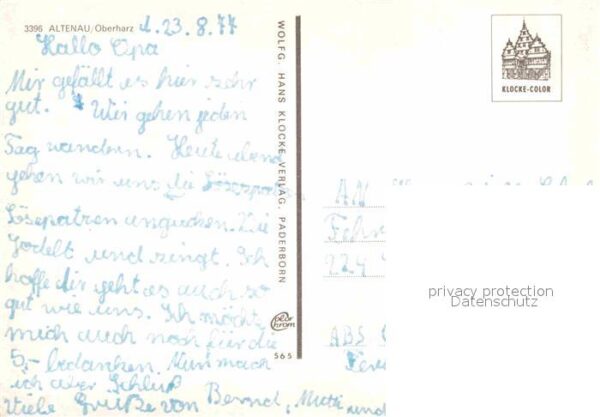 3396 ALTENAU/Oberharz d. 23.8.77
Hallo Opa
Mir gefällt es hier sehr
gut. Wir gehen jeden
Tag wandern. Heute abend
gehen wir uns die
angucken. Die
Jodelt und singt. Ich
hoffe dir geht es auch so
gut wie uns. Ich möchte
mich auch noch für die
5,- bedanken. Nun mach
ich aber Schluß
Viele Grüße von Bernd, Mutti und
WOLFG. HANS KLOCKE VERLAG, PADERBORN
color chrom
565
KLOCKE-COLOR
AN
224
ABS
privacy protection
Datenschutz